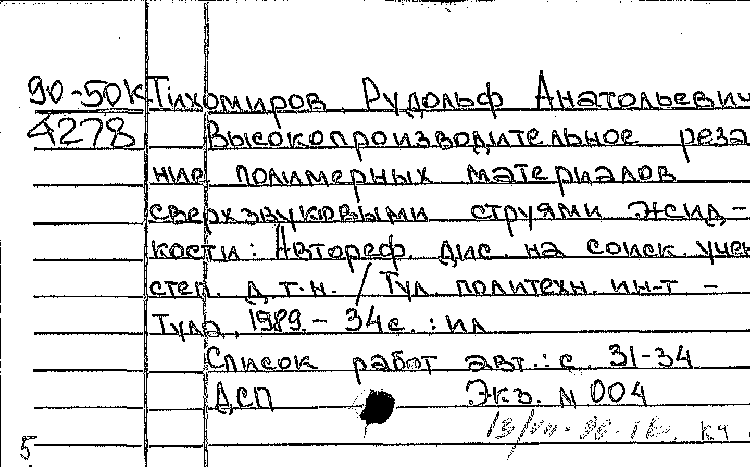 90-50к Тихомиров, Рудольф Анатольевич
4278 Высокопроизводительное реза
ние полимерных материалов
сверхзвуковыми струями жид-
кости: Автореф. дис. на соиск. учен
степ. д.т.н. / Тул. политехн. ин-т -
Тула, 1989. - 34с. : ил
Список работ авт.: с. 31-34
ДСП Экз. N 004
кч
5